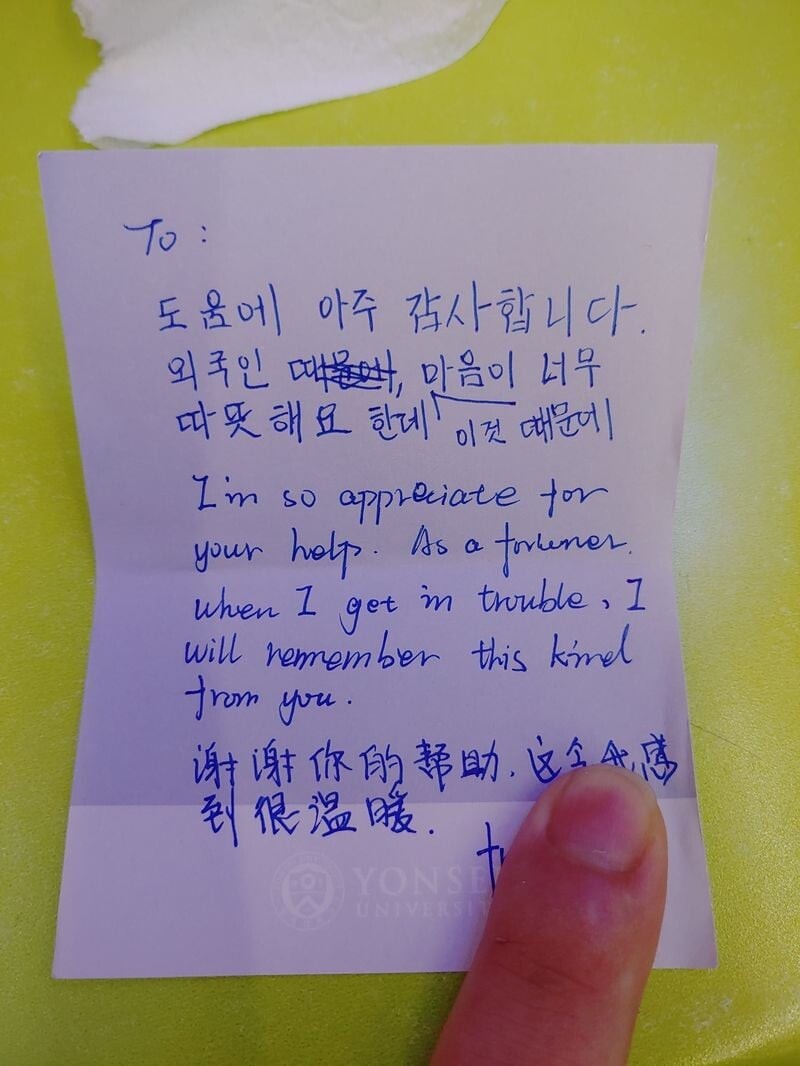 To :
도움에 아주 감사합니다.
외국인 마음이 너무
따뜻해요 한데 이것 때문에
I'm so appreciate for
your help. As a foruner.
when I get in trouble, I
will remember this kind
from you.
谢谢你的帮助. 这令我感
到很温暖.
YONSE
UNIVERSIT